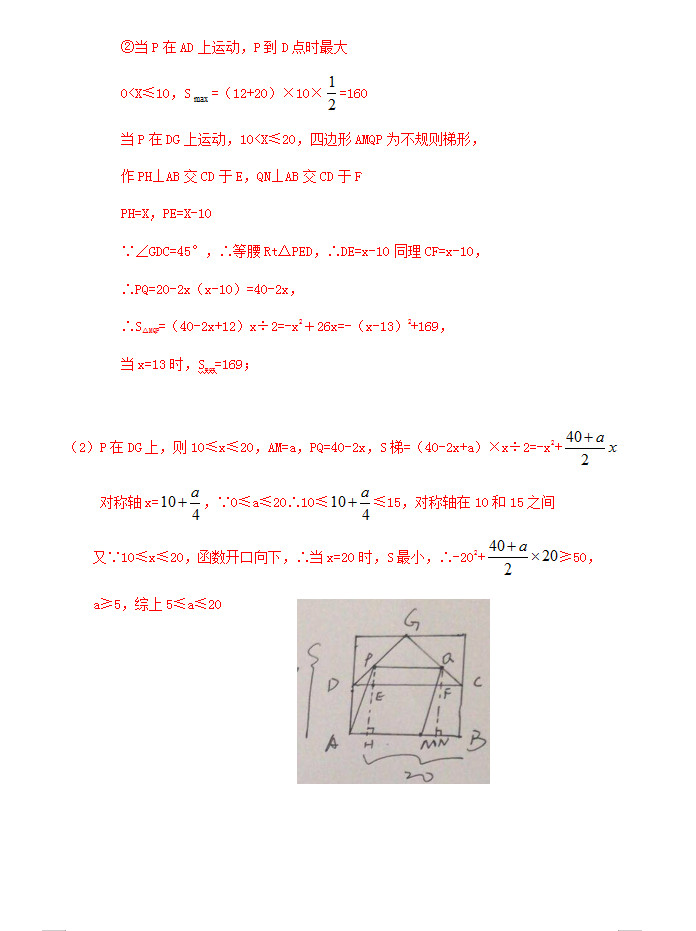 ②当 P 在 AD 上运动，P 到 D 点时最大
0<X≤10，S max =（12+20）×10×1/2=160
当 P 在 DG 上运动，10<X≤20，四边形 AMQP 为不规则梯形，
作 PH⊥AB 交 CD 于 E，QN⊥AB 交 CD 于 F
PH=X，PE=X-10
∵∠GDC=45°，∴等腰 Rt△PED，∴DE=x-10 同理 CF=x-10，
∴PQ=20-2x（x-10）=40-2x，
∴S△MQP=（40-2x+12）x÷2=-x²＋26x=-（x-13）²+169，
当 x=13 时，S=169；
（2）P 在 DG 上，则 10≤x≤20，AM=a，PQ=40-2x，S 梯=（40-2x+a）×x÷2=-x²+(40+a)/2 x
对称轴 x=10+a/4，∵0≤a≤20∴10≤10+a/4≤15，对称轴在 10 和 15 之间
又∵10≤x≤20，函数开口向下，∴当 x=20 时，S 最小，∴-20²+(40+a)/2×20≥50，
a≥5，综上 5≤a≤20
G
P Q
D E F C
A H M N B
20